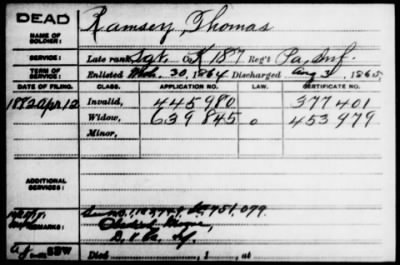 DEAD
NAME OF SOLDIER: Ramsey Thomas
SERVICE: Late rank Sgt. Co. K 187 Reg't Pa. Inf.
TERM OF SERVICE: Enlisted Mch. 30, 1864 Discharged Aug 3, 1865
DATE OF FILING. CLASS. APPLICATION NO. LAW. CERTIFICATE NO.
1882 Apr. 12 Invalid, 445980 377401
Widow, 639845 0 453979
Minor,
ADDITIONAL SERVICES:
REMARKS:
Died , 1 , at